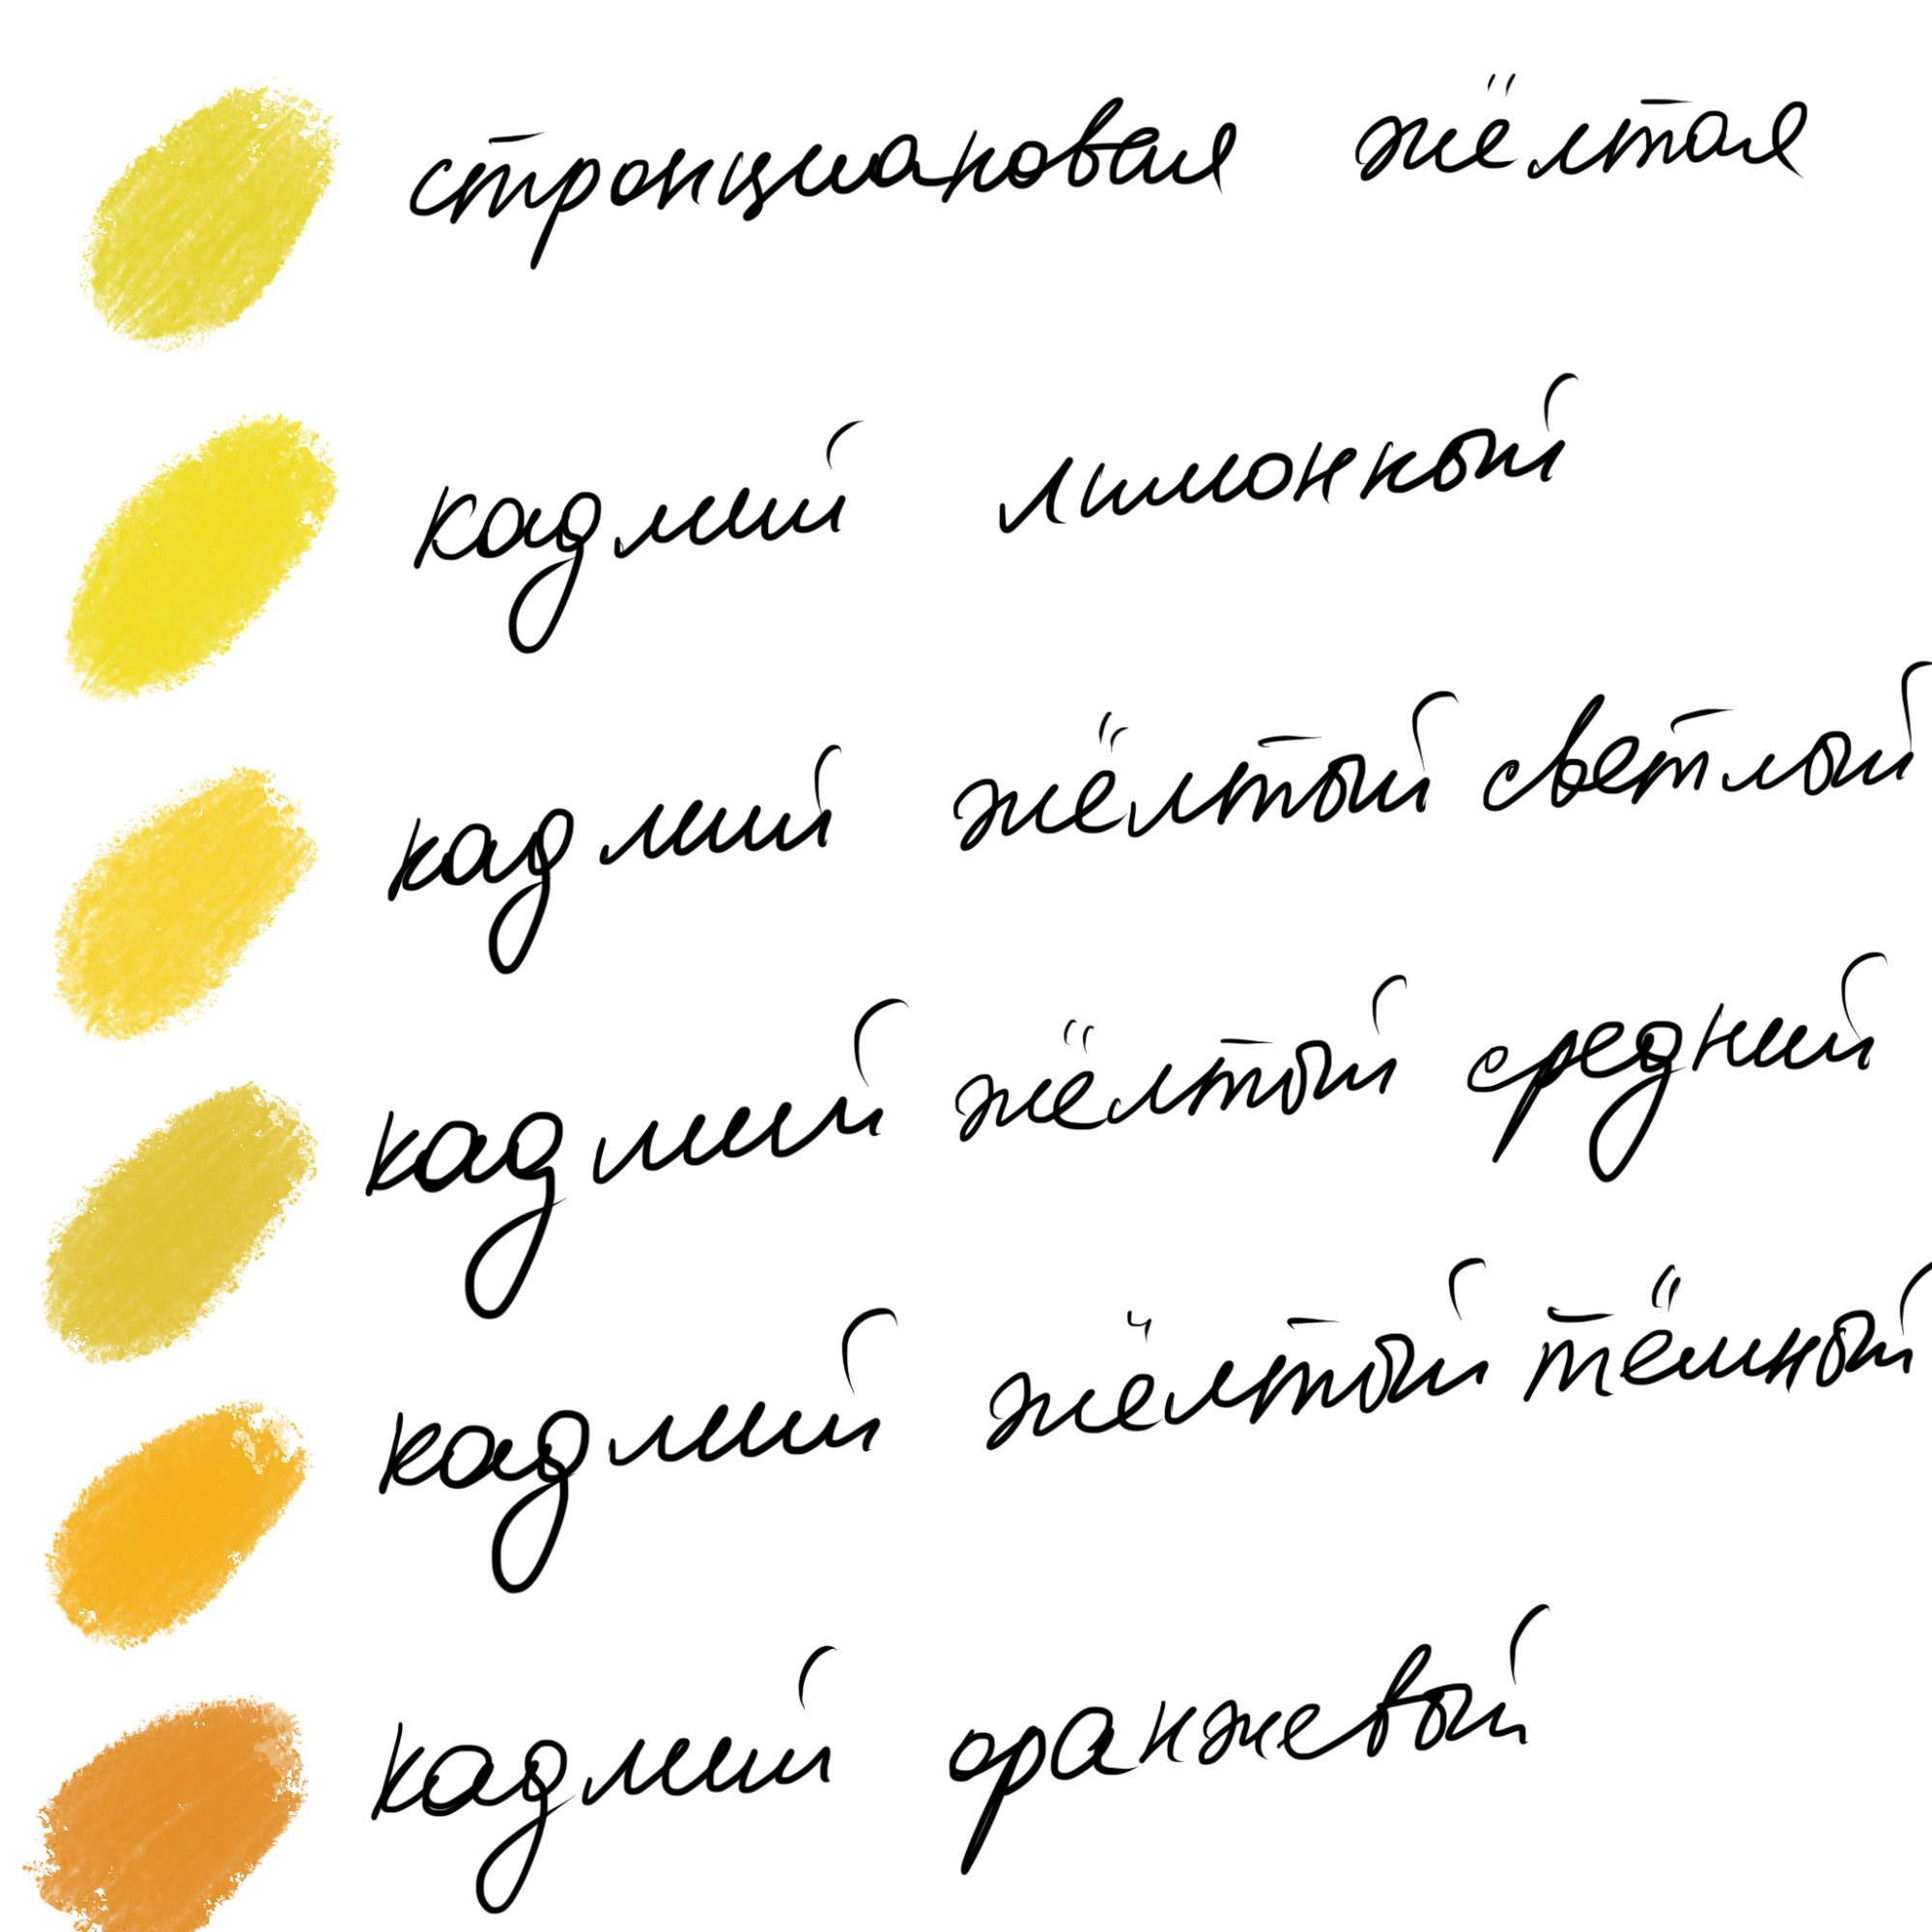 стронциановая жёлтая
кадмий лимонный
кадмий жёлтый светлый
кадмий жёлтый средний
кадмий жёлтый тёмный
кадмий оранжевый